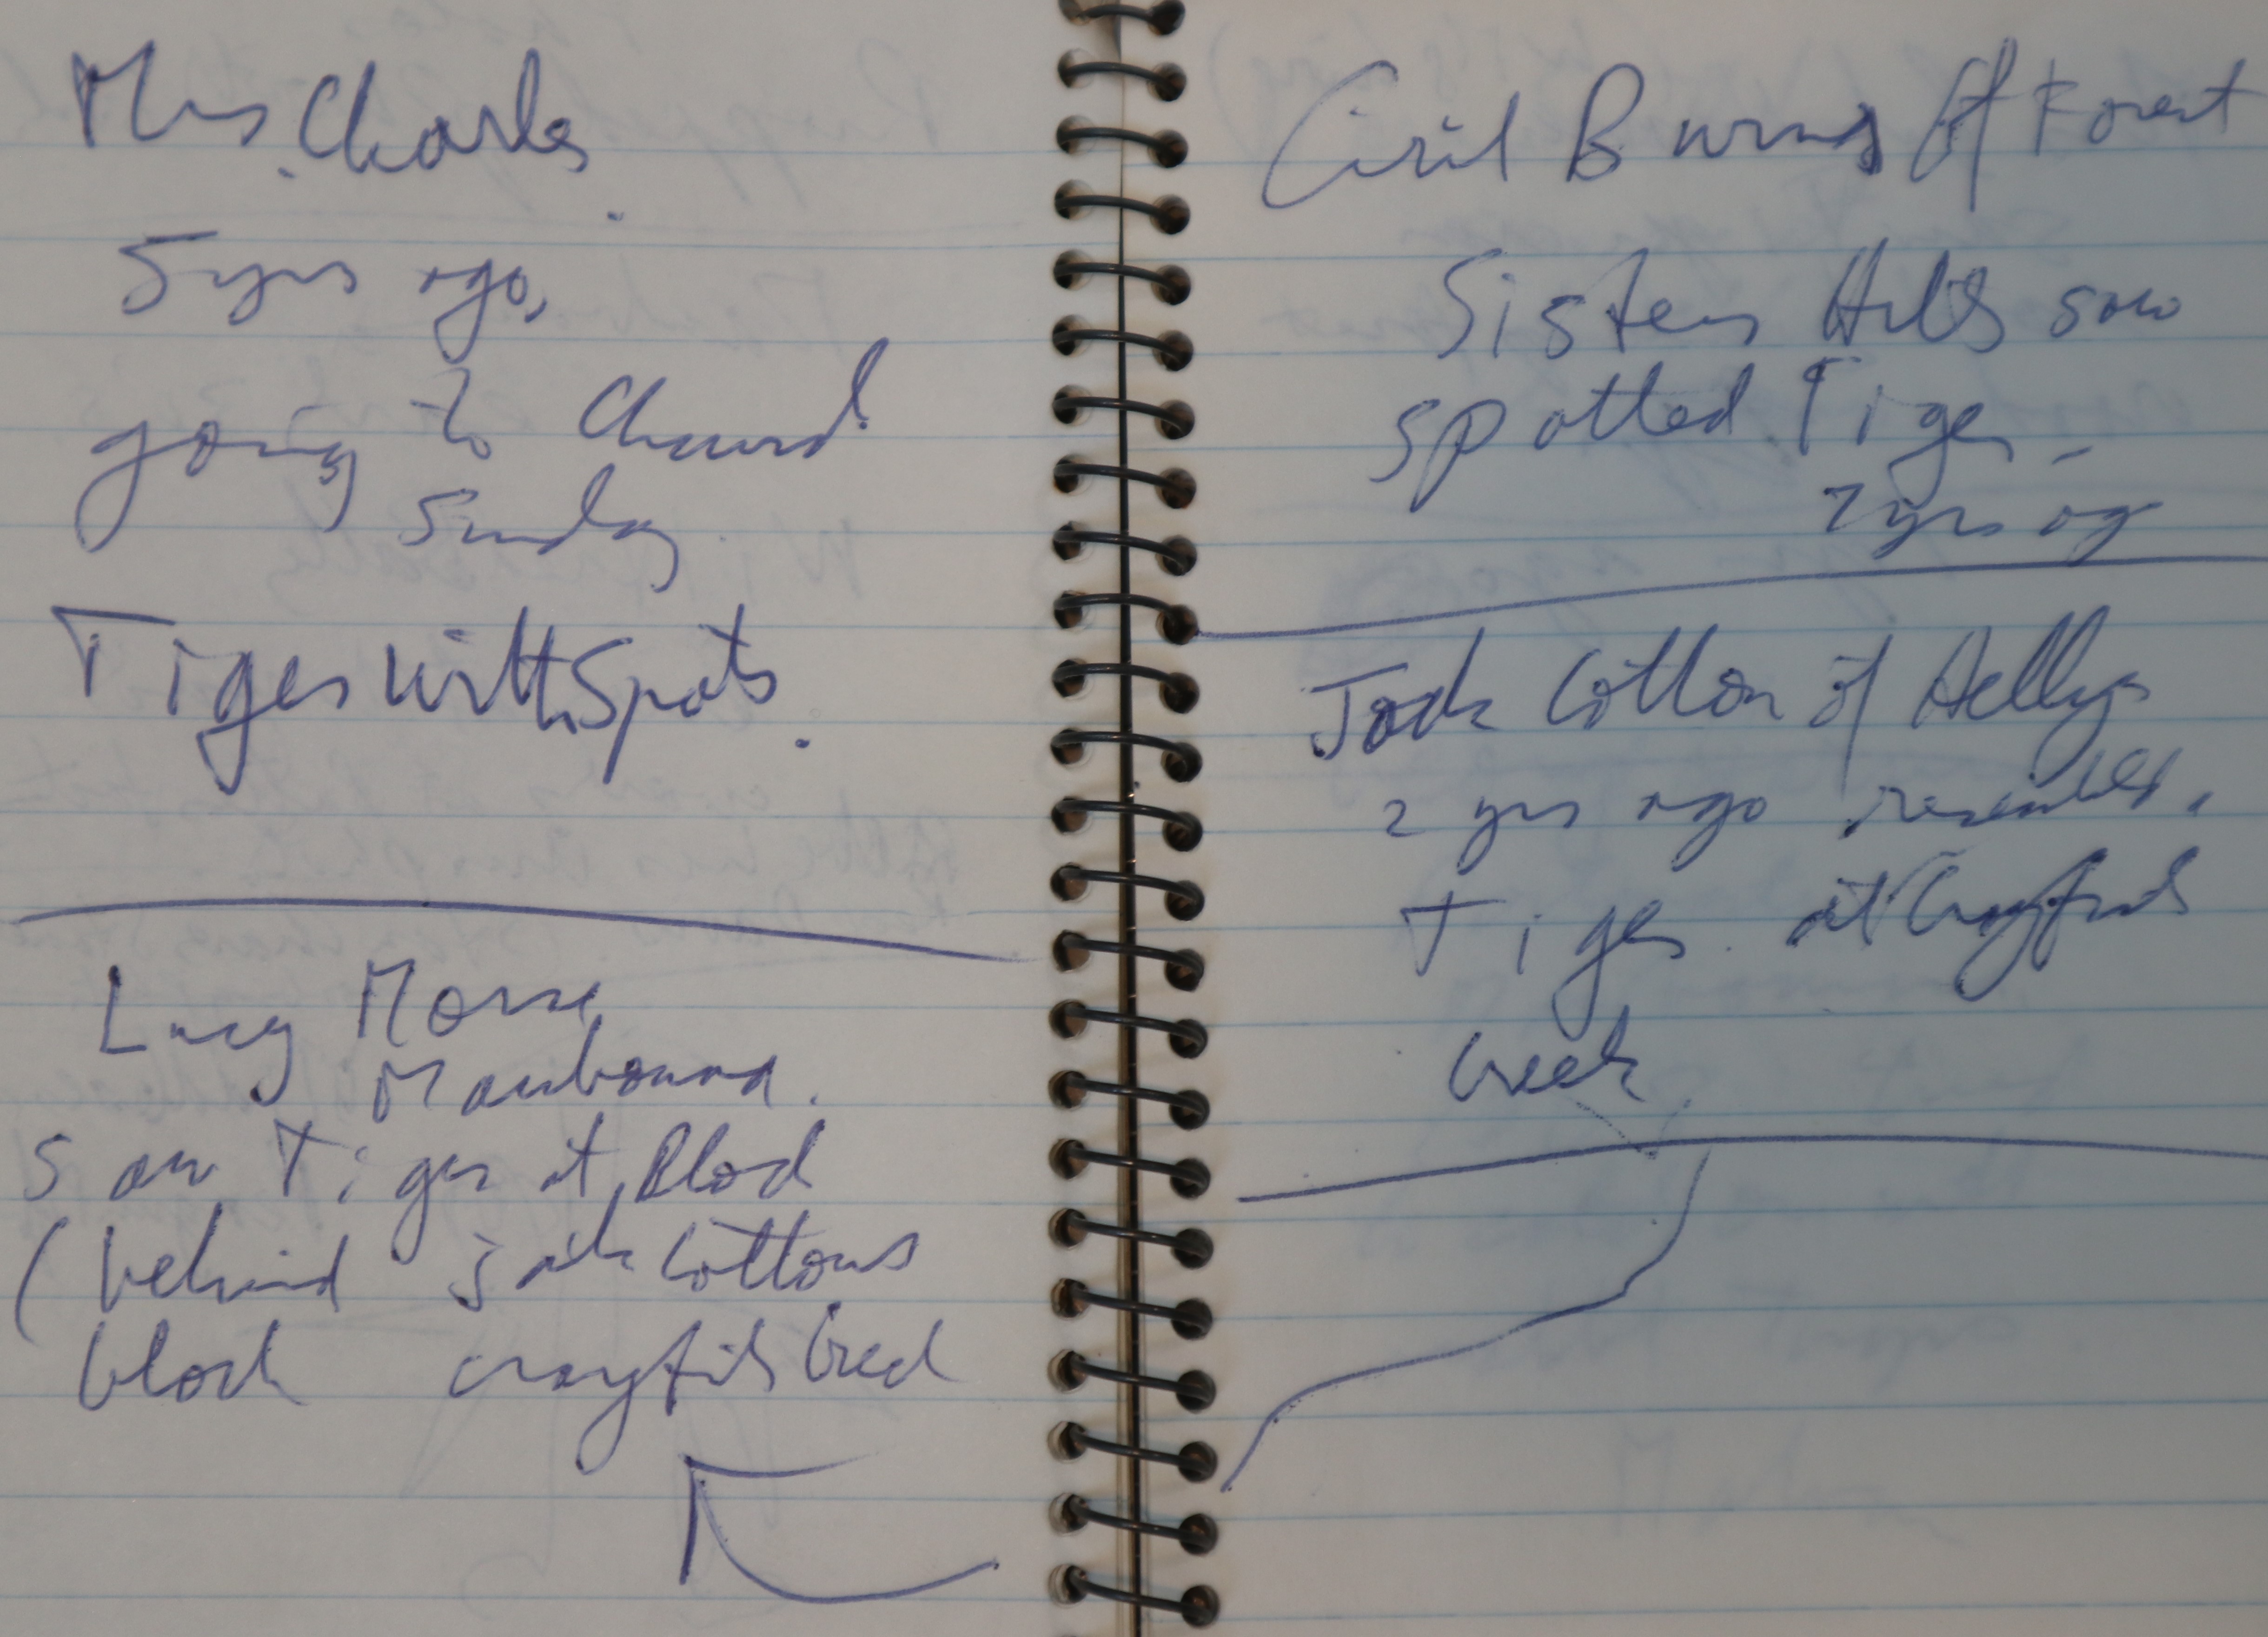 Mrs. Charles.
5 yrs ago,
going to Church
Sunday
Tiger with Spots.
Lucy Morse
Mawbanna.
Saw Tiger at Block
(behind Jack Cottons
block crayfish Creek
Ciril Burns of Forest
Sisters Hills saw
spotted Tiger -
7 yrs ag
Jack Cotton of Hellyer
2 yrs ago
Tiger. at Crayfish
Creek